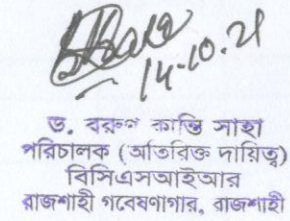 14-10.21
ড. বরুণ কান্তি সাহা
পরিচালক (অতিরিক্ত দায়িত্ব)
বিসিএসআইআর
রাজশাহী গবেষণাগার, রাজশাহী